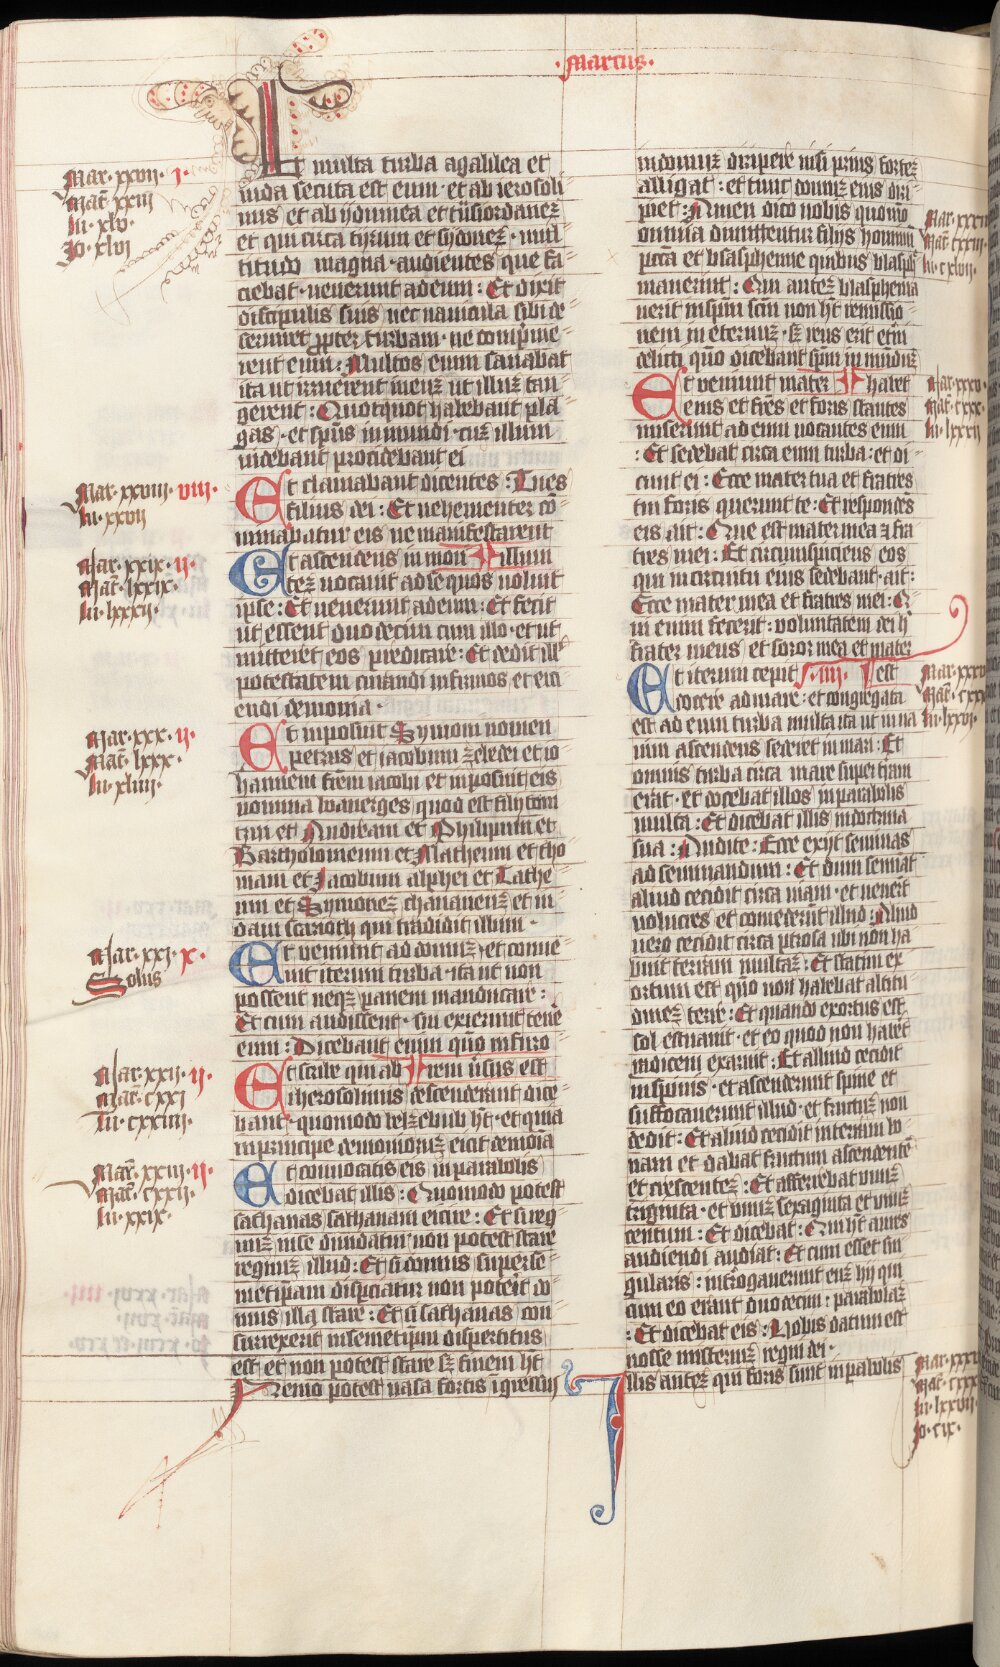 ·Marcus·
Mar· xxvii· I·
Mat̄· xxiii
lu· xlv·
Jo· xlvi
Et multa turba a galilea et
iuda secuta est eum· et ab ierosoli
mis et ab ydumea et t̄nsiordanez
et qui circa tyrum et sydonez· mul
titudo magna· audientes que fa
ciebat· uenerunt ad eum : Et dixit
discipulis suis ut nauicula sibi de
seruiret propter turbam· ne comprime
rent eum : Multos enim sanabat
ita ut irruerent in euz ut illuz tan
gerent : Quotquot habebant pla
gas· et sp̄us inmundi· cuz illum
uidebant procidebant ei
Mar· xxviii· viii·
lu· xxvii
Et clamabant dicentes : Tu es
filius dei : Et uehementer cō
minabatur eis ne manifestarent
Mar· xxix· ii·
Mat̄· lxxix·
lu· lxxxii·
Et ascendens in mon illum
tez uocauit ad se quos uoluit
ipse : Et uenerunt ad eum : Et fecit
ut essent duodecim cum illo· et ut
mitteret eos predicare : Et dedit ill'
potestatem curandi infirmos et eici
endi demonia·
Mar· xxx· ii·
Mat̄· lxxx·
lu· xliiii·
Et inposuit Symoni nomen
petrus et iacobum zebedei et io
hannem frēm iacobi et inposuit eis
nomina boanerges quod est filii toni
trui et Andream et Philipum et
Bartholomeum et Matheum et tho
mam et Jacobum alphei et Tathe
um et Symonez chananeuz et iu
dam scarioth qui tradidit illum·
Mar· xxi· x·
Solus
Et ueniunt ad domuz· et conue
nit iterum turba· ita ut non
possent neqz panem manducare :
Et cum audissent· sui exierunt tene
eum : Dicebant enim quō in furo
Mar· xxii· ii·
Mat· cxxi
lu· cxxiiii·
Et scribe qui ab rem uersus est
iherosolimis descenderant dice
bant· quomodo belzebub hēt· et quia
in principe demonioruz eicit demōia
Mar̄· xxiii· ii·
Mat̄· cxxii·
lu· xxix·
Et conuocatis eis in parabolis
dicebat illis : Quomodo potest
sathanas sathanam eicire : Et si reg
nuz in se diuidatur non potest stare
regnuz illud : Et si domus super se
metipsam dispciatur non poterit do
mus illa stare : Et si sathanas con
surrexerit in semetipsum dispertitus
est et non potest stare sz finem hēt
Nemo potest uasa fortis īgressus
in domuz diripere nisi prius fortez
alligat : et tunc domuz eius diri
piet : Amen dico uobis quonio
omnia dimittentur filiis hominū
pctā et blasphemie quibus blasph
mauerint : Qui autez blasphema
uerit in sp̄m scm̄ non hēt remissio
nem in eternuz· sz reus erit et̄ni
delicti quō dicebant sp̄m in mūduz
Et ueniunt mater habet
eius et frēs et foris stantes
miserunt ad eum uocantes eum
: Et sedebat circa eum turba : et di
cunt ei : Ecce mater tua et fratres
tui foris querunt te : Et respondēs
eis ait : Que est mater mea z fra
tres mei : Et circumspiciens eos
qui in circuitu eius sedebant· ait :
Ecce mater mea et fratres mei : Q
ui enim fecerit : uoluntatem dei h̄
frater meus et soror mea et mater
Et iterum cepit ·iiii· est
docere ad mare : et congregata
est ad eum turba multa ita ut in na
uim ascendens sederet in mari : Et
omnis turba circa mare super t̄ram
erat· et docebat illos in parabolis
multa : Et dicebat illis in doctrina
sua : Audite : Ecce exiit seminās
ad seminandum : Et dum seminat
aliud cecidit circa uiam· et uenerūt
uolucres et comederunt illud : Aliud
uero cecidit circa petrosa ubi non ha
buit terram multaz : Et statim ex
ortum est quō non habebat altitu
dinez terre : Et quando exortus est
sol estuauit· et eo quod non habet
radicem exaruit : Et alliud cecidit
in spinis· et ascenderunt spine et
suffocauerunt illud· et fructuz non
dedit : Et aliud cecidit in terram bo
nam et dabat fructum ascendentē
et crescentez : Et afferebat unuz
triginta· et unuz sexaginta et unuz
centum : Et dicebat : Qui hēt aures
audiendi audiat : Et cum esset sin
gularis : interogauerunt euz hii qui
cum eo erant duodecim : parabolaz
: Et dicebat eis : Uobis datum est
nosse misteriuz regni dei·
Illis autez qui foris sunt in pabolis
Mar· xxxv·
Mat̄· cxxx·
lu· lxxxii
lu· lxxvi·
lu· lxxvii·
Jo· cix·